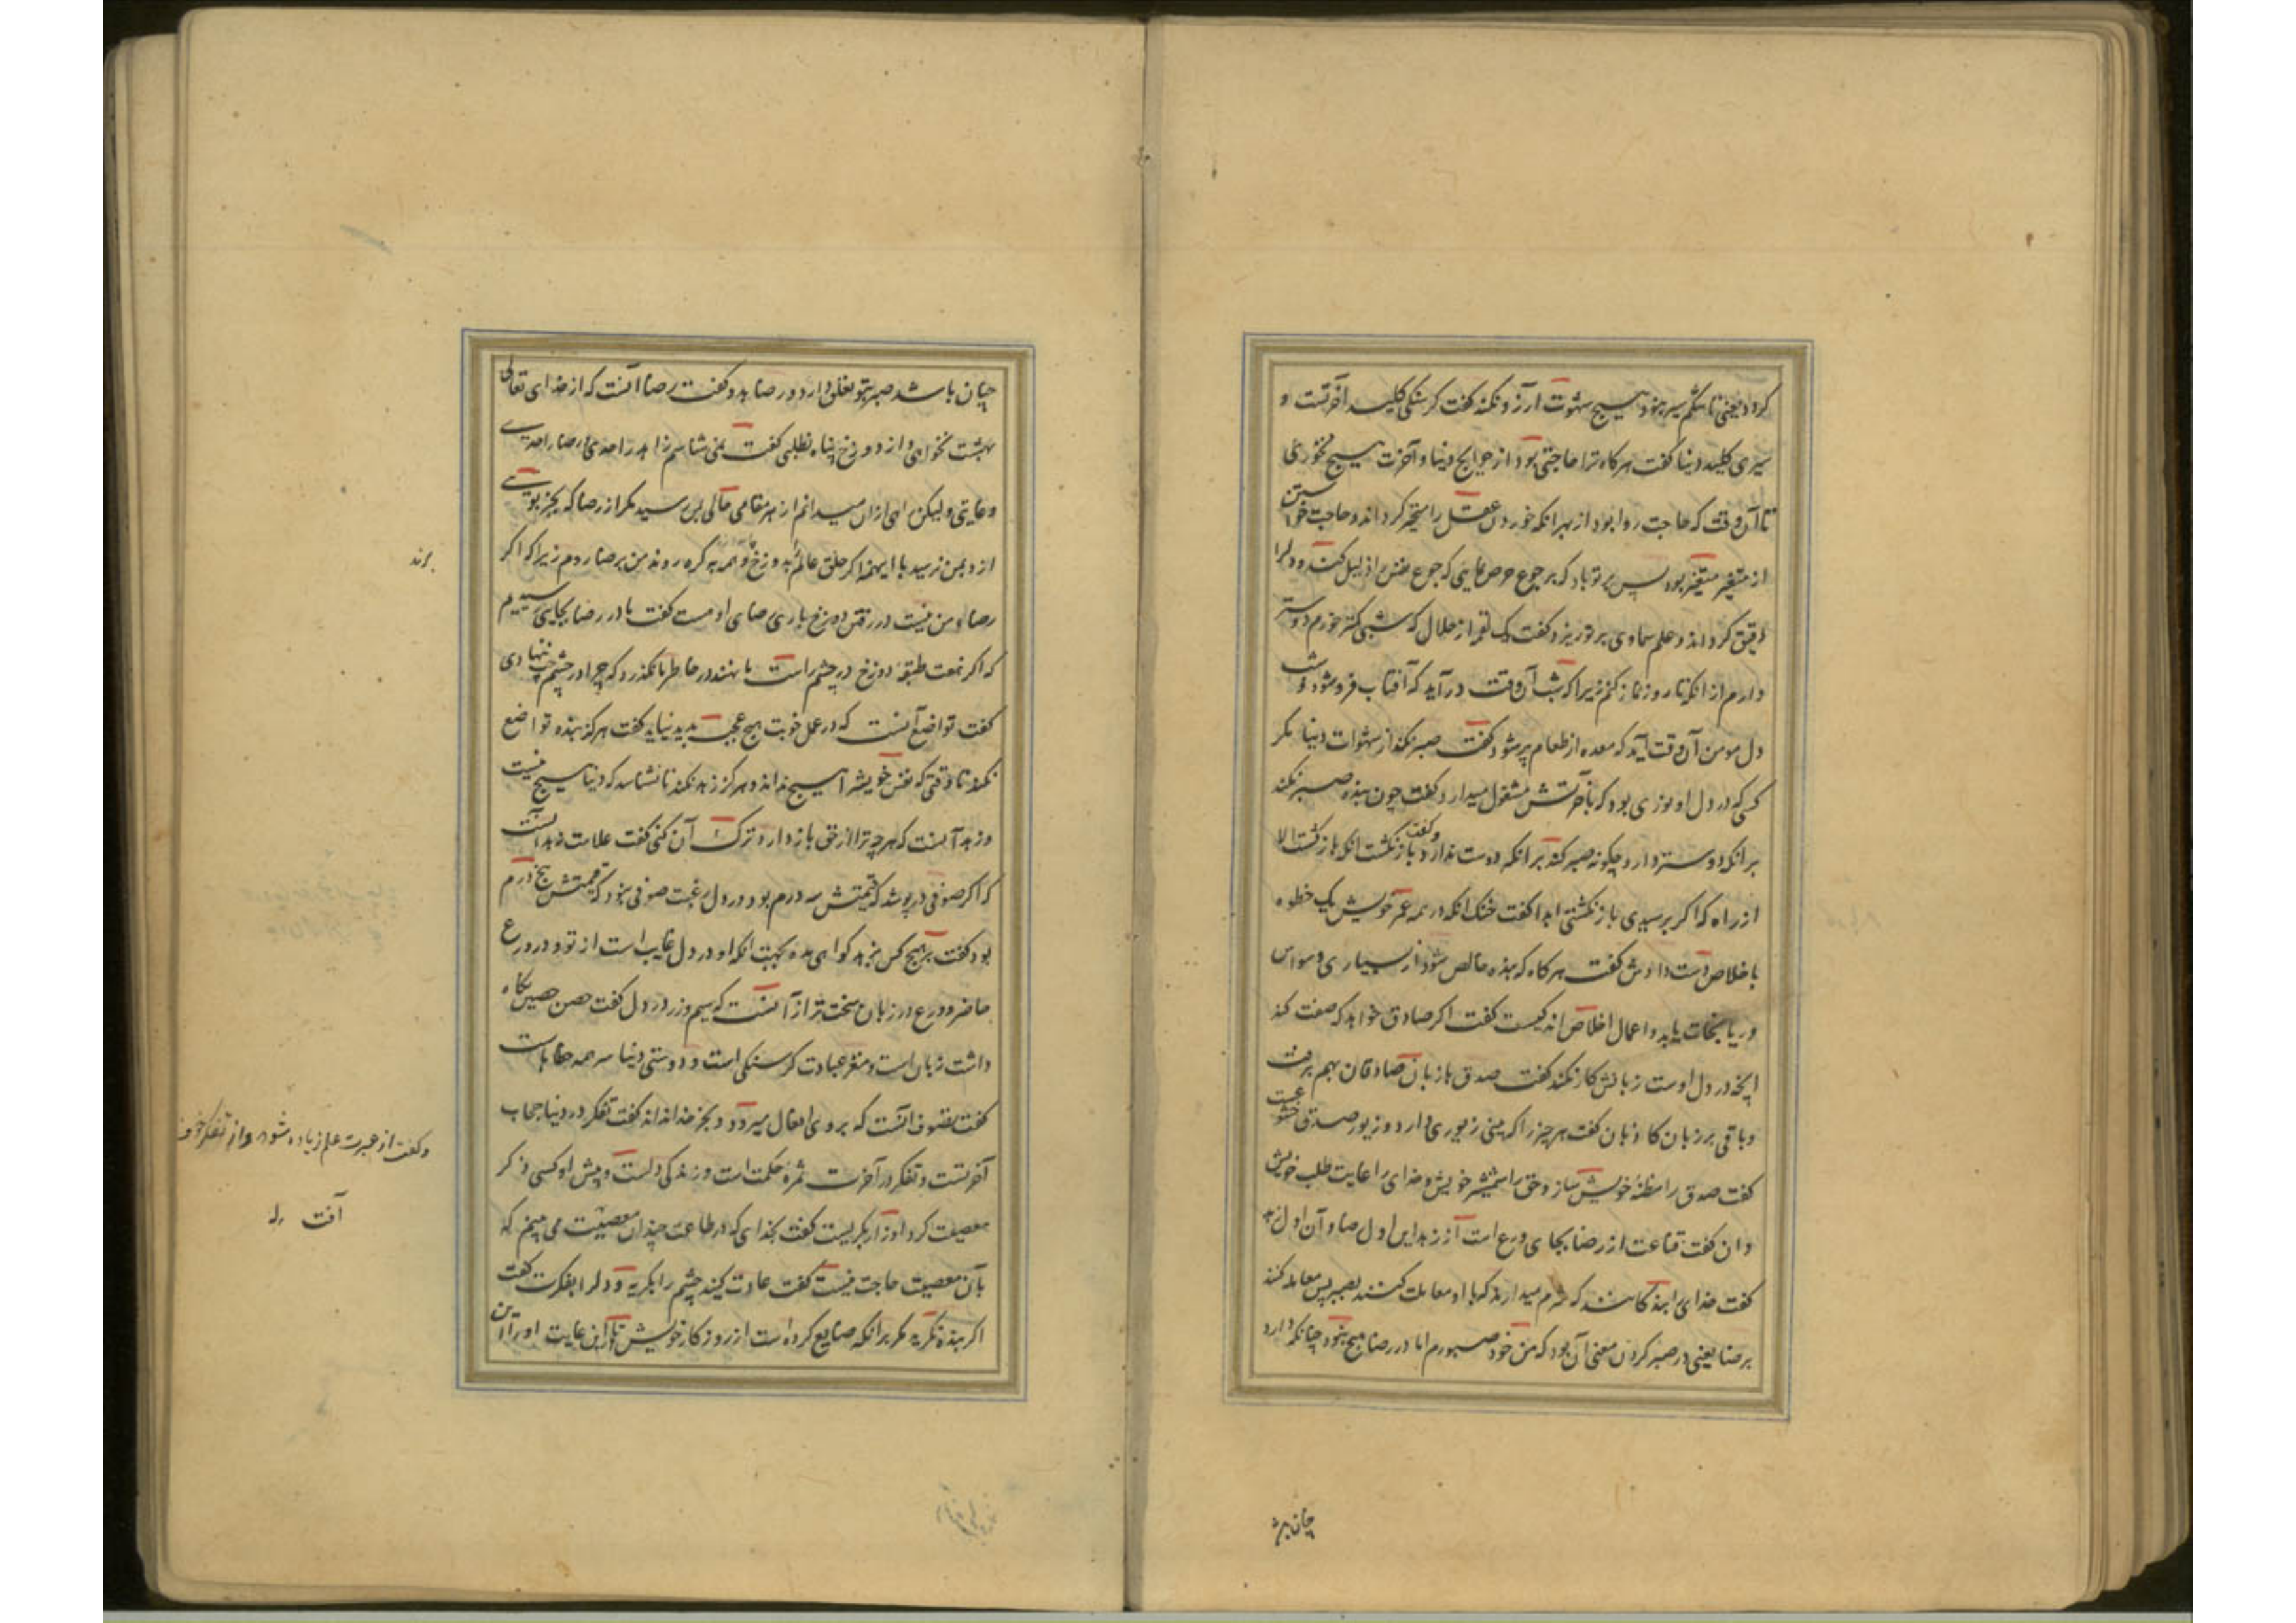 کردد یعنی تا شکم سیر نبود هیچ شهوت آرزو نکند گفت کرسنکی کلید آخرتست و
سیری کلید دنیا گفت هرکاه ترا حاجتی بود از حوایج دنیا و آخرت هیچ نخوری
تا آن وقت که حاجت روا بود از بهر انکه خوردن عقل را متغیر کرداند و حاجت خواستن
از متغیر متغیر بود پس بر تو باد که بر جوع حرص نمایی که جوع نفس را ذلیل کند و دلرا
رقیق کرداند و علم سماوی بر تو ریزد و گفت یک لقمه از حلال که شبی کمتر خورم دوستر
دارم از انکه تا روز نماز کنم زیرا که شب آن وقت در آید که آفتاب فرو شود و شب
دل مومن آن وقت آید که معده از طعام پر شود گفت صبر نکند از شهوات دنیا مکر
کسی که در دل او نوری بود که بآخرتش مشغول میدارد گفت چون بنده صبر نکند
بر انکه دوستر دارد چکونه صبر کند بر انکه دوست ندارد و گفت باز نکشت انکه باز کشت الا
از راه که اکر برسیدی باز نکشتی ابدا گفت خنک انکه در همه عمر خویش یک خطوه
باخلاص دست دادش گفت هرکاه که بنده خالص شود از بسیاری وسواس
و ریا نجات یابد و اعمال اخلاص اندکیست گفت اکر صادق خواهد که صفت کند
انچه در دل اوست زبانش کار نکند گفت صدق با زبان صادقان بهم برفت
و باقی بر زبان کاذبان گفت هر چیز را که بینی زیوری دارد و زیور صدق خشوعست
گفت صدق را مطیه خویش ساز و حق را شمشیر خویش و خدای را غایت طلب خویش
دان گفت قناعت از رضا بجای ورع است از زهد این اول رضا و آن اول زهد
گفت خدای را بندکانند که شرم میدارند که با او معاملت کنند بصبر پس معامله کنند
برضا یعنی در صبر کردن معنی آن بود که من خود صبورم اما در رضا هیچ نبود چنانکه دارد
چنان باشد
چنان باشد صبر بتو تعلق دارد و رضا بدو گفت رضا آنست که از خدای تعالی
بهشت نخواهی و از دوزخ پناه نطلبی گفت نمی شناسم زهد را حدی و رضا را حدی
و غایتی و لیکن راهی از ان میدانم از هر مقامی حالی بمن رسید مکر از رضا که بجز بویی
از و بمن نرسید با اینهمه اکر خلق عالم بدوزخ و همه بکره روند من برضا روم زیراکه اکر
رضاء من نیست در رفتن دوزخ باری رضای او هست گفت ما در رضا بجایی رسیدیم
که اکر هفت طبقه دوزخ در چشم راست ما نهند در خاطر ما نکذرد که چرا در چشم چپ ننهادی
گفت تواضع آنست که در عمل خویت هیچ عجب پدید نیاید گفت هرکز بنده تواضع
نکند تا وقتی که نفس خویش را هیچ نداند و هرکز زهد نکند تا نشناسد که دنیا هیچ نیست
و زهد آنست که هرچه ترا از حق باز دارد ترک آن کنی گفت علامت زهد آنست
که اکر صوفی در پوشد که قیمتش سه درم بود در دل رغبت صوفی نبود که قیمتش پنج درم
بود گفت بر هیچ کس بزهد کواهی مده بجهت انکه او در دل غایب است از تو و در ورع
حاضر و ورع در زبان سخت تر از آنست که سیم و زر در دل گفت حصن حصین نکاه
داشت زبان است و مغز عبادت کرسنکی است و دوستی دنیا سر همه خطاهاست
گفت تصوف آنست که بر وی افعال میرود و بجز خدا نداند گفت تفکر در دنیا حجاب
آخرتست و تفکر در آخرت ثمره حکمت است و زندکی دلست و پیش او کسی ذکر
معصیت کرد او زار بکریست گفت بخدای که در طاعت چندان معصیت می بینم که
بآن معصیت حاجت نیست گفت عادت کنید چشم را بکریه و دل را بفکرت گفت
اکر بنده نکرید مکر برانکه ضایع کرده است از روزکار خویش تا این غایت او را آن
برند
و گفت از عبرت علم زیاده شود و از تفکر خوف